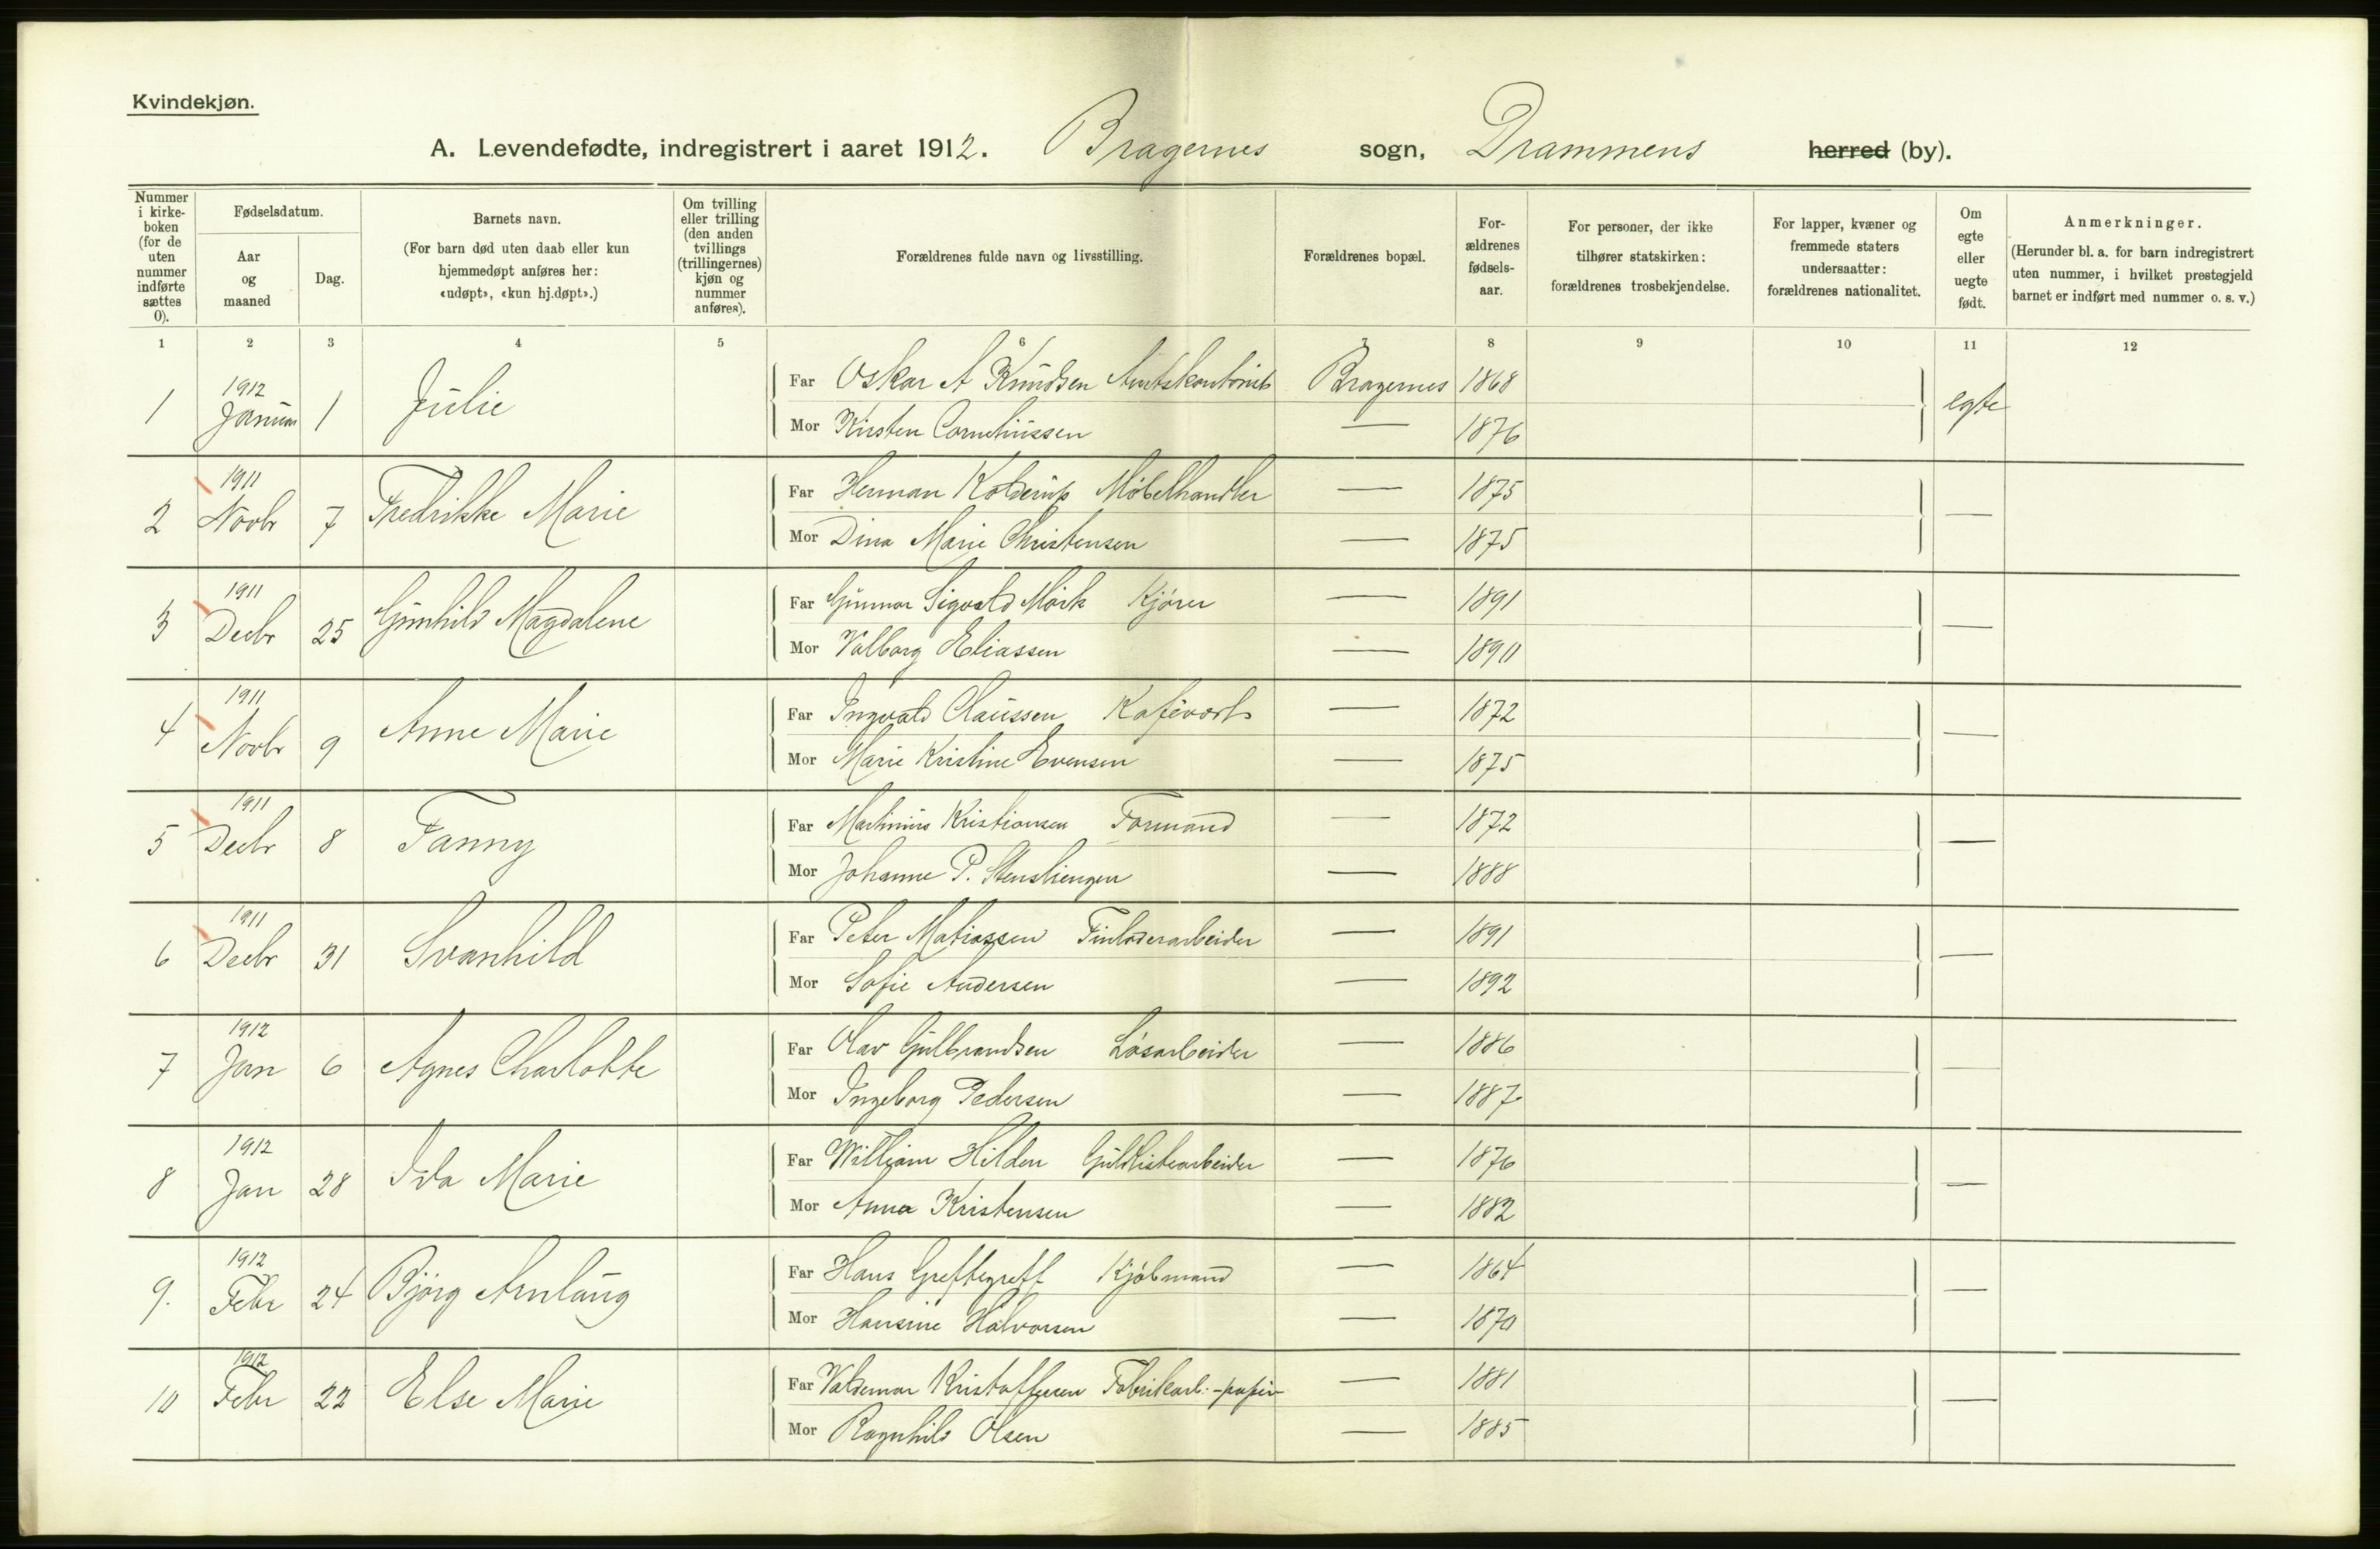 Kvindekjøn.
A. Levendefødte, indregistrert i aaret 1912. Bragernes sogn, Drammens herred (by).
Nummer i kirke-boken (for de uten nummer indførte sættes 0).
Fødselsdatum.
Aar og maaned
Dag.
Barnets navn.
(For barn død uten daab eller kun hjemmedøpt anføres her: «udøpt», «kun hj.døpt».)
Om tvilling eller trilling (den anden tvillings (trillingernes) kjøn og nummer anføres).
Forældrenes fulde navn og livsstilling.
Forældrenes bopæl.
For-ældrenes fødsels-aar.
For personer, der ikke tilhører statskirken: forældrenes trosbekjendelse.
For lapper, kvæner og fremmede staters undersaatter: forældrenes nationalitet.
Om egte eller uegte født.
Anmerkninger.
(Herunder bl. a. for barn indregistrert uten nummer, i hvilket prestegjeld barnet er indført med nummer o. s. v.)
1 2 3 4 5 6 7 8 9 10 11 12
1 1912 Januar 1 Julie
Far Oskar A Knudsen Bragernes 1868 egte
Mor Kirsten Corneliussen — 1876
2 1911 Novbr 7 Fredrikke Marie
Far Herman Kolderup Møbelhandler — 1875 —
Mor Dina Marie Christensen — 1875
3 1911 Decbr 25 Gunhild Magdalene
Far Gunnar Sigvald Mörk Kjører — 1891 —
Mor Valborg Eliassen — 1890
4 1911 Novbr 9 Anne Marie
Far Ingvald Claussen Kafévert — 1872 —
Mor Marie Kristine Evensen — 1875
5 1911 Decbr 8 Fanny
Far Martinius Kristiansen Formand — 1872 —
Mor Johanne P. — 1888
6 1911 Decbr 31 Svanhild
Far Peter Matiassen — 1891 —
Mor Sofie Andersen — 1892
7 1912 Jan 6 Agnes Charlotte
Far Olav Gulbrandsen Løsarbeider — 1886 —
Mor Ingeborg Pedersen — 1887
8 1912 Jan 28 Ida Marie
Far William Hilden Guldlistearbeider — 1876 —
Mor Anna Kristensen — 1882
9. 1912 Febr 24 Bjørg Arnlaug
Far Hans Greftegreff Kjøbmand — 1864 —
Mor Hansine Halvorsen — 1870
10 1912 Febr 22 Else Marie
Far Valdemar Kristoffersen Fabrikarb. -papir- — 1881 —
Mor Ragnhild Olsen — 1885